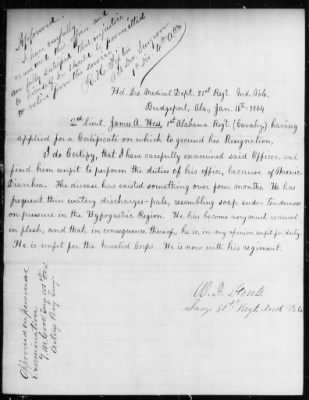 Approved.
I have carefully
examined this Officer and
am fully satisfied that injustice
is being done him if not permitted
to retire from the service.
Surgeon
Hd. Qrs Medical Dept. 81st Regt. Ind. Vols.
Bridgeport, Ala., Jan. 16th 1864
2nd Lieut. James A. 1st Alabama Regt. (Cavalry) having
applied for a Certificate on which to ground his Resignation,
I do Certify, that I have carefully examined said Officer, and
find him unfit to perform the duties of his office, because of Chronic
Diarrhea. The disease has existed something over four months. He has
frequent thin watery discharges—pale, resembling soap suds—tenderness
on pressure in the Hypogastric Region. He has become very much reduced
in flesh, and that, in consequence thereof, he is, in my opinion unfit for duty.
He is unfit for the Invalid Corps. He is now with his regiment.
Surg. 81st Regt. Ind. Vols.
Approved on personal
Examination
Acting Brig Surg